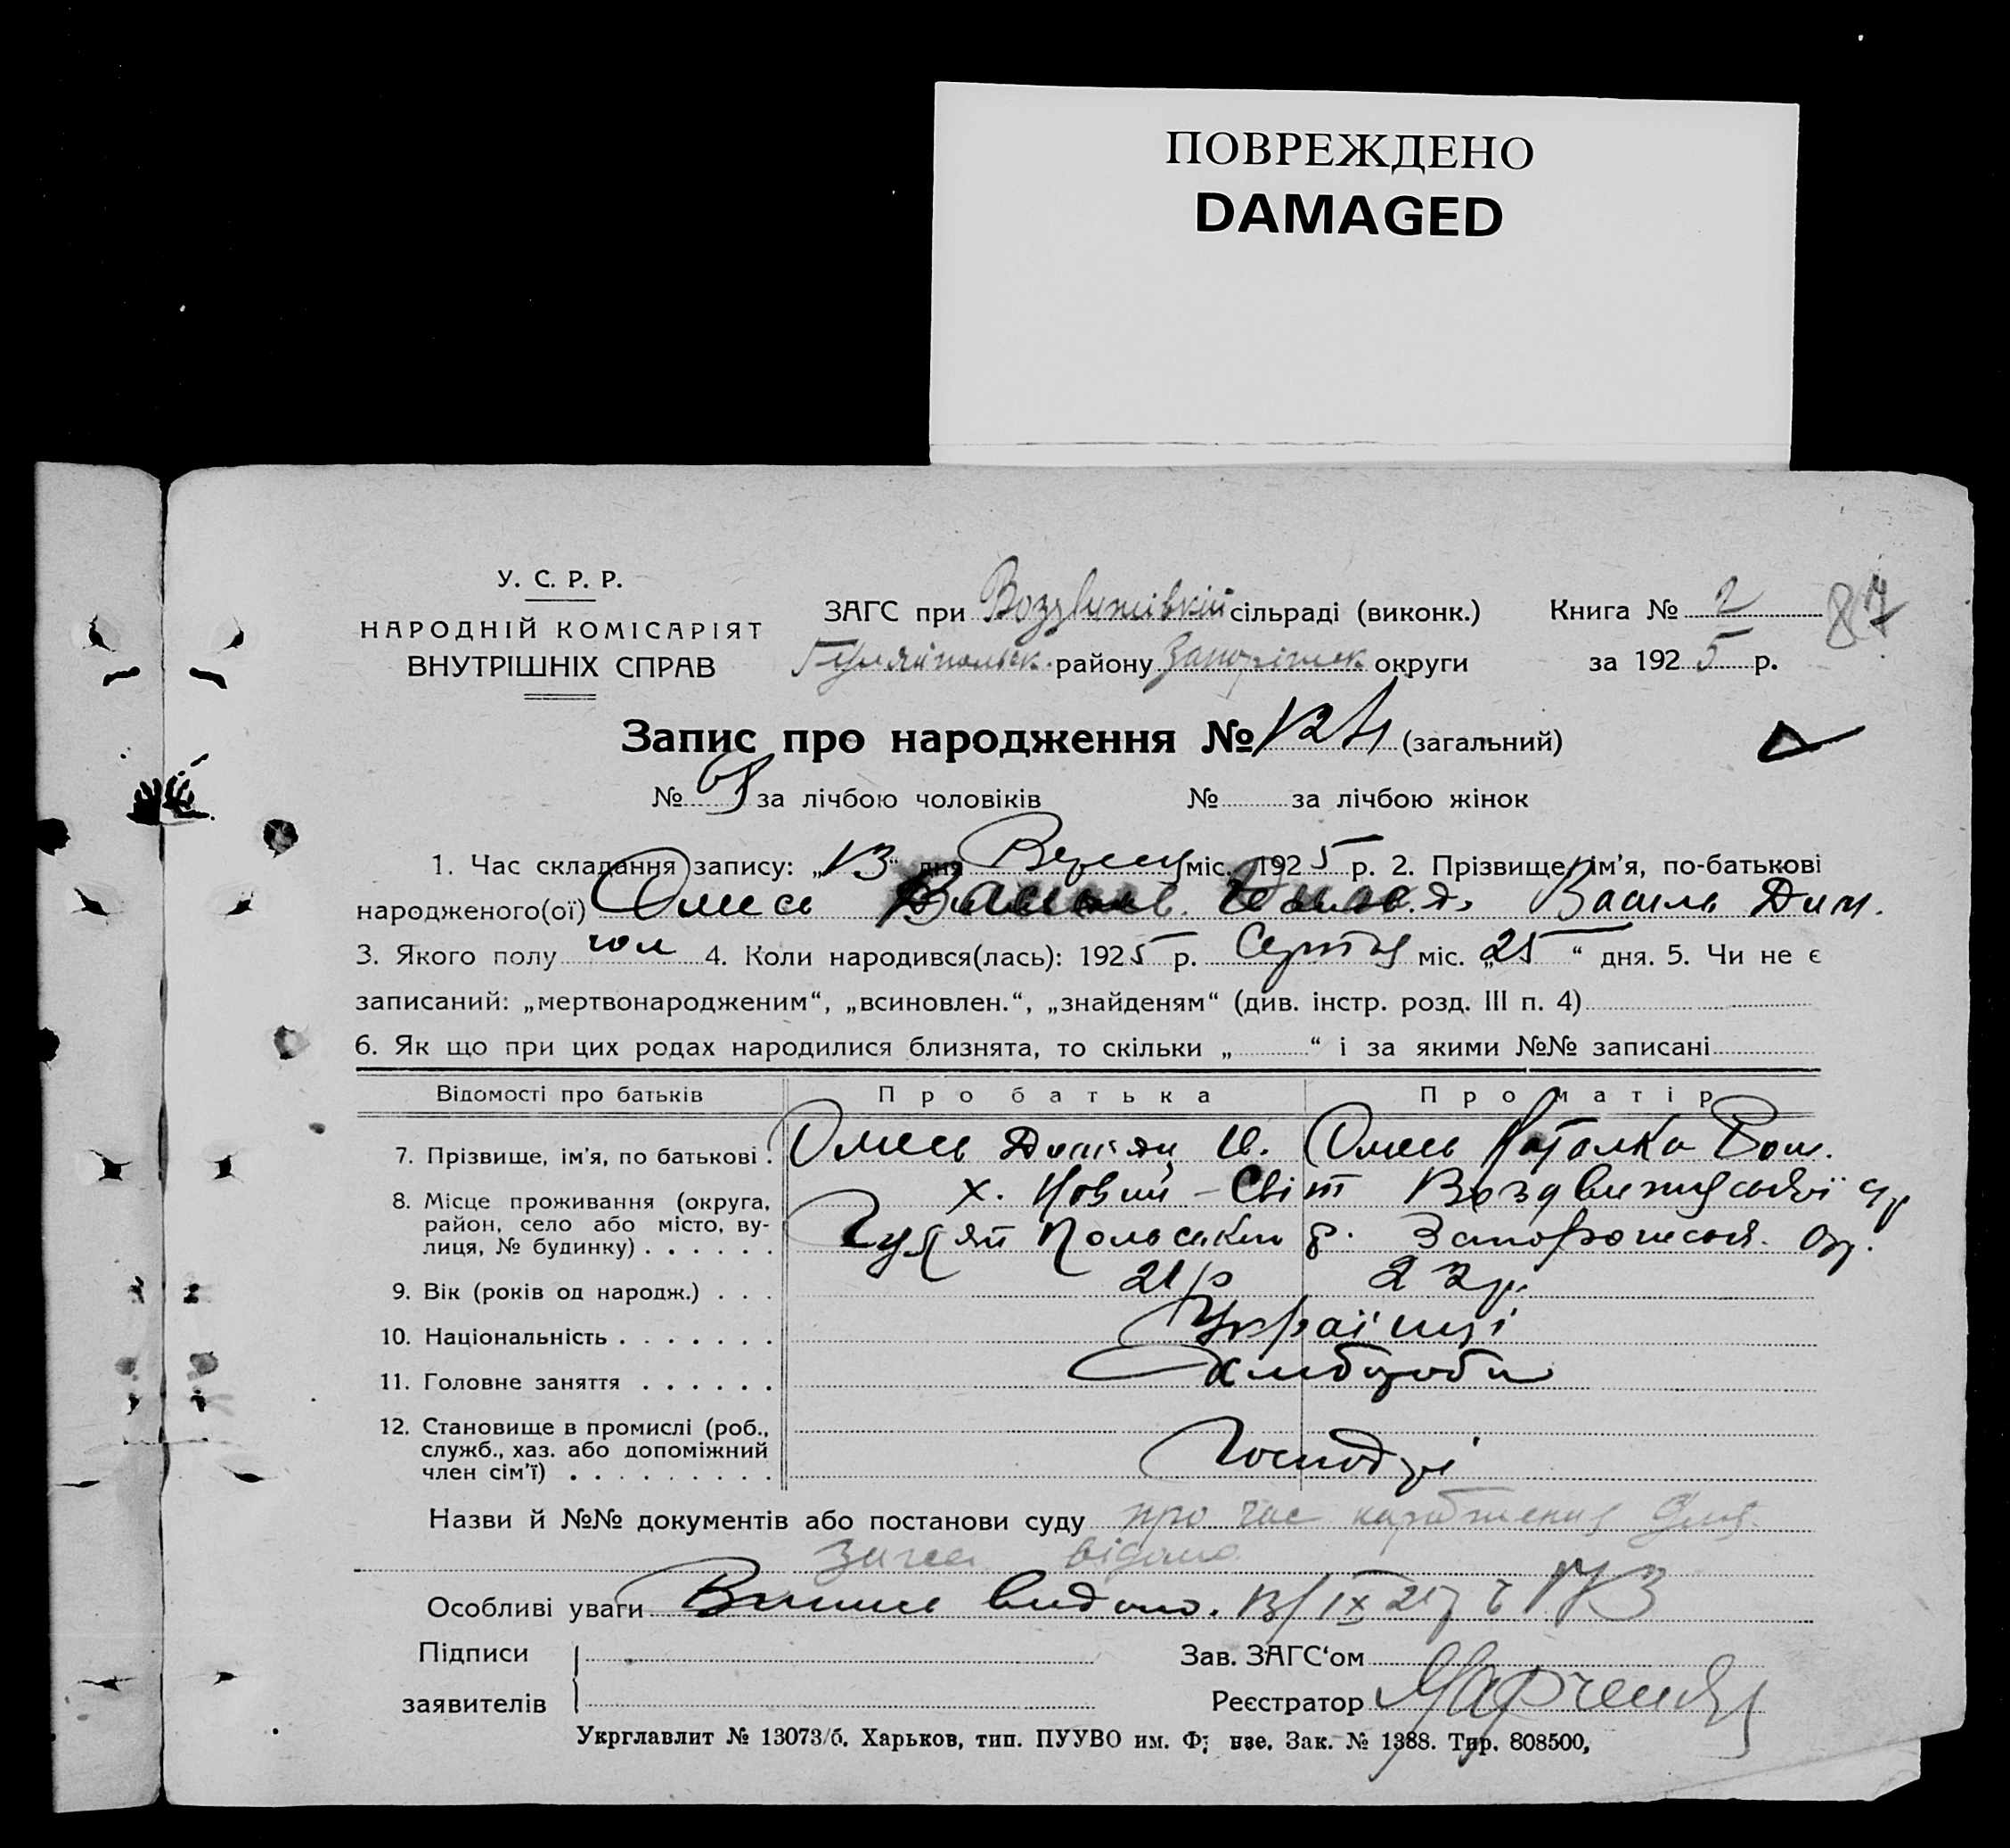 ПОВРЕЖДЕНО
DAMAGED
У. С. Р. Р.
НАРОДНІЙ КОМІСАРІЯТ
ВНУТРІШНІХ СПРАВ
ЗАГС при Воздвижівкій сільраді (виконк.)
Гуляйпольськ. району Запоріжск. округи
Книга № 2
87
за 1925 р.
Запис про народження № 124 (загальний)
№ за лічбою чоловіків № за лічбою жінок
1. Час складання запису: „13“ дня міс. 1925 р. 2. Прізвище, ім'я, по-батькові
народженого(ої) Омесь Василь Дим.
3. Якого полу чол 4. Коли народився(лась): 1925 р. Серпня міс. „25“ дня. 5. Чи не є
записаний: „мертвонародженим“, „всиновлен.“, „знайденям“ (див. інстр. розд. III п. 4)
6. Як що при цих родах народилися близнята, то скільки „ “ і за якими №№ записані
Відомості про батьків Про батька Про матір
7. Прізвище, ім'я, по батькові . Омесь И. Омесь Наталка Ром.
8. Місце проживання (округа, район, село або місто, вулиця, № будинку) . . . . . . х. Новий-Світ
Гуляй Польськ р. Запорожськ. окр.
9. Вік (років од народж.) . . . 21 р 22 р.
10. Національність . . . . . . . Українці
11. Головне заняття . . . . . . Хлібороби
12. Становище в промислі (роб., служб., хаз. або допоміжний член сім'ї) . . . . . . . . . Господарі
Назви й №№ документів або постанови суду про час
відома
Особливі уваги Виписе видано. 13/IX 25 173
Підписи
заявителів
Зав. ЗАГС'ом
Реєстратор Марченко
Укрглавлит № 13073/б. Харьков, тип. ПУУВО им. Ф; нзе. Зак. № 1388. Тир. 808500,